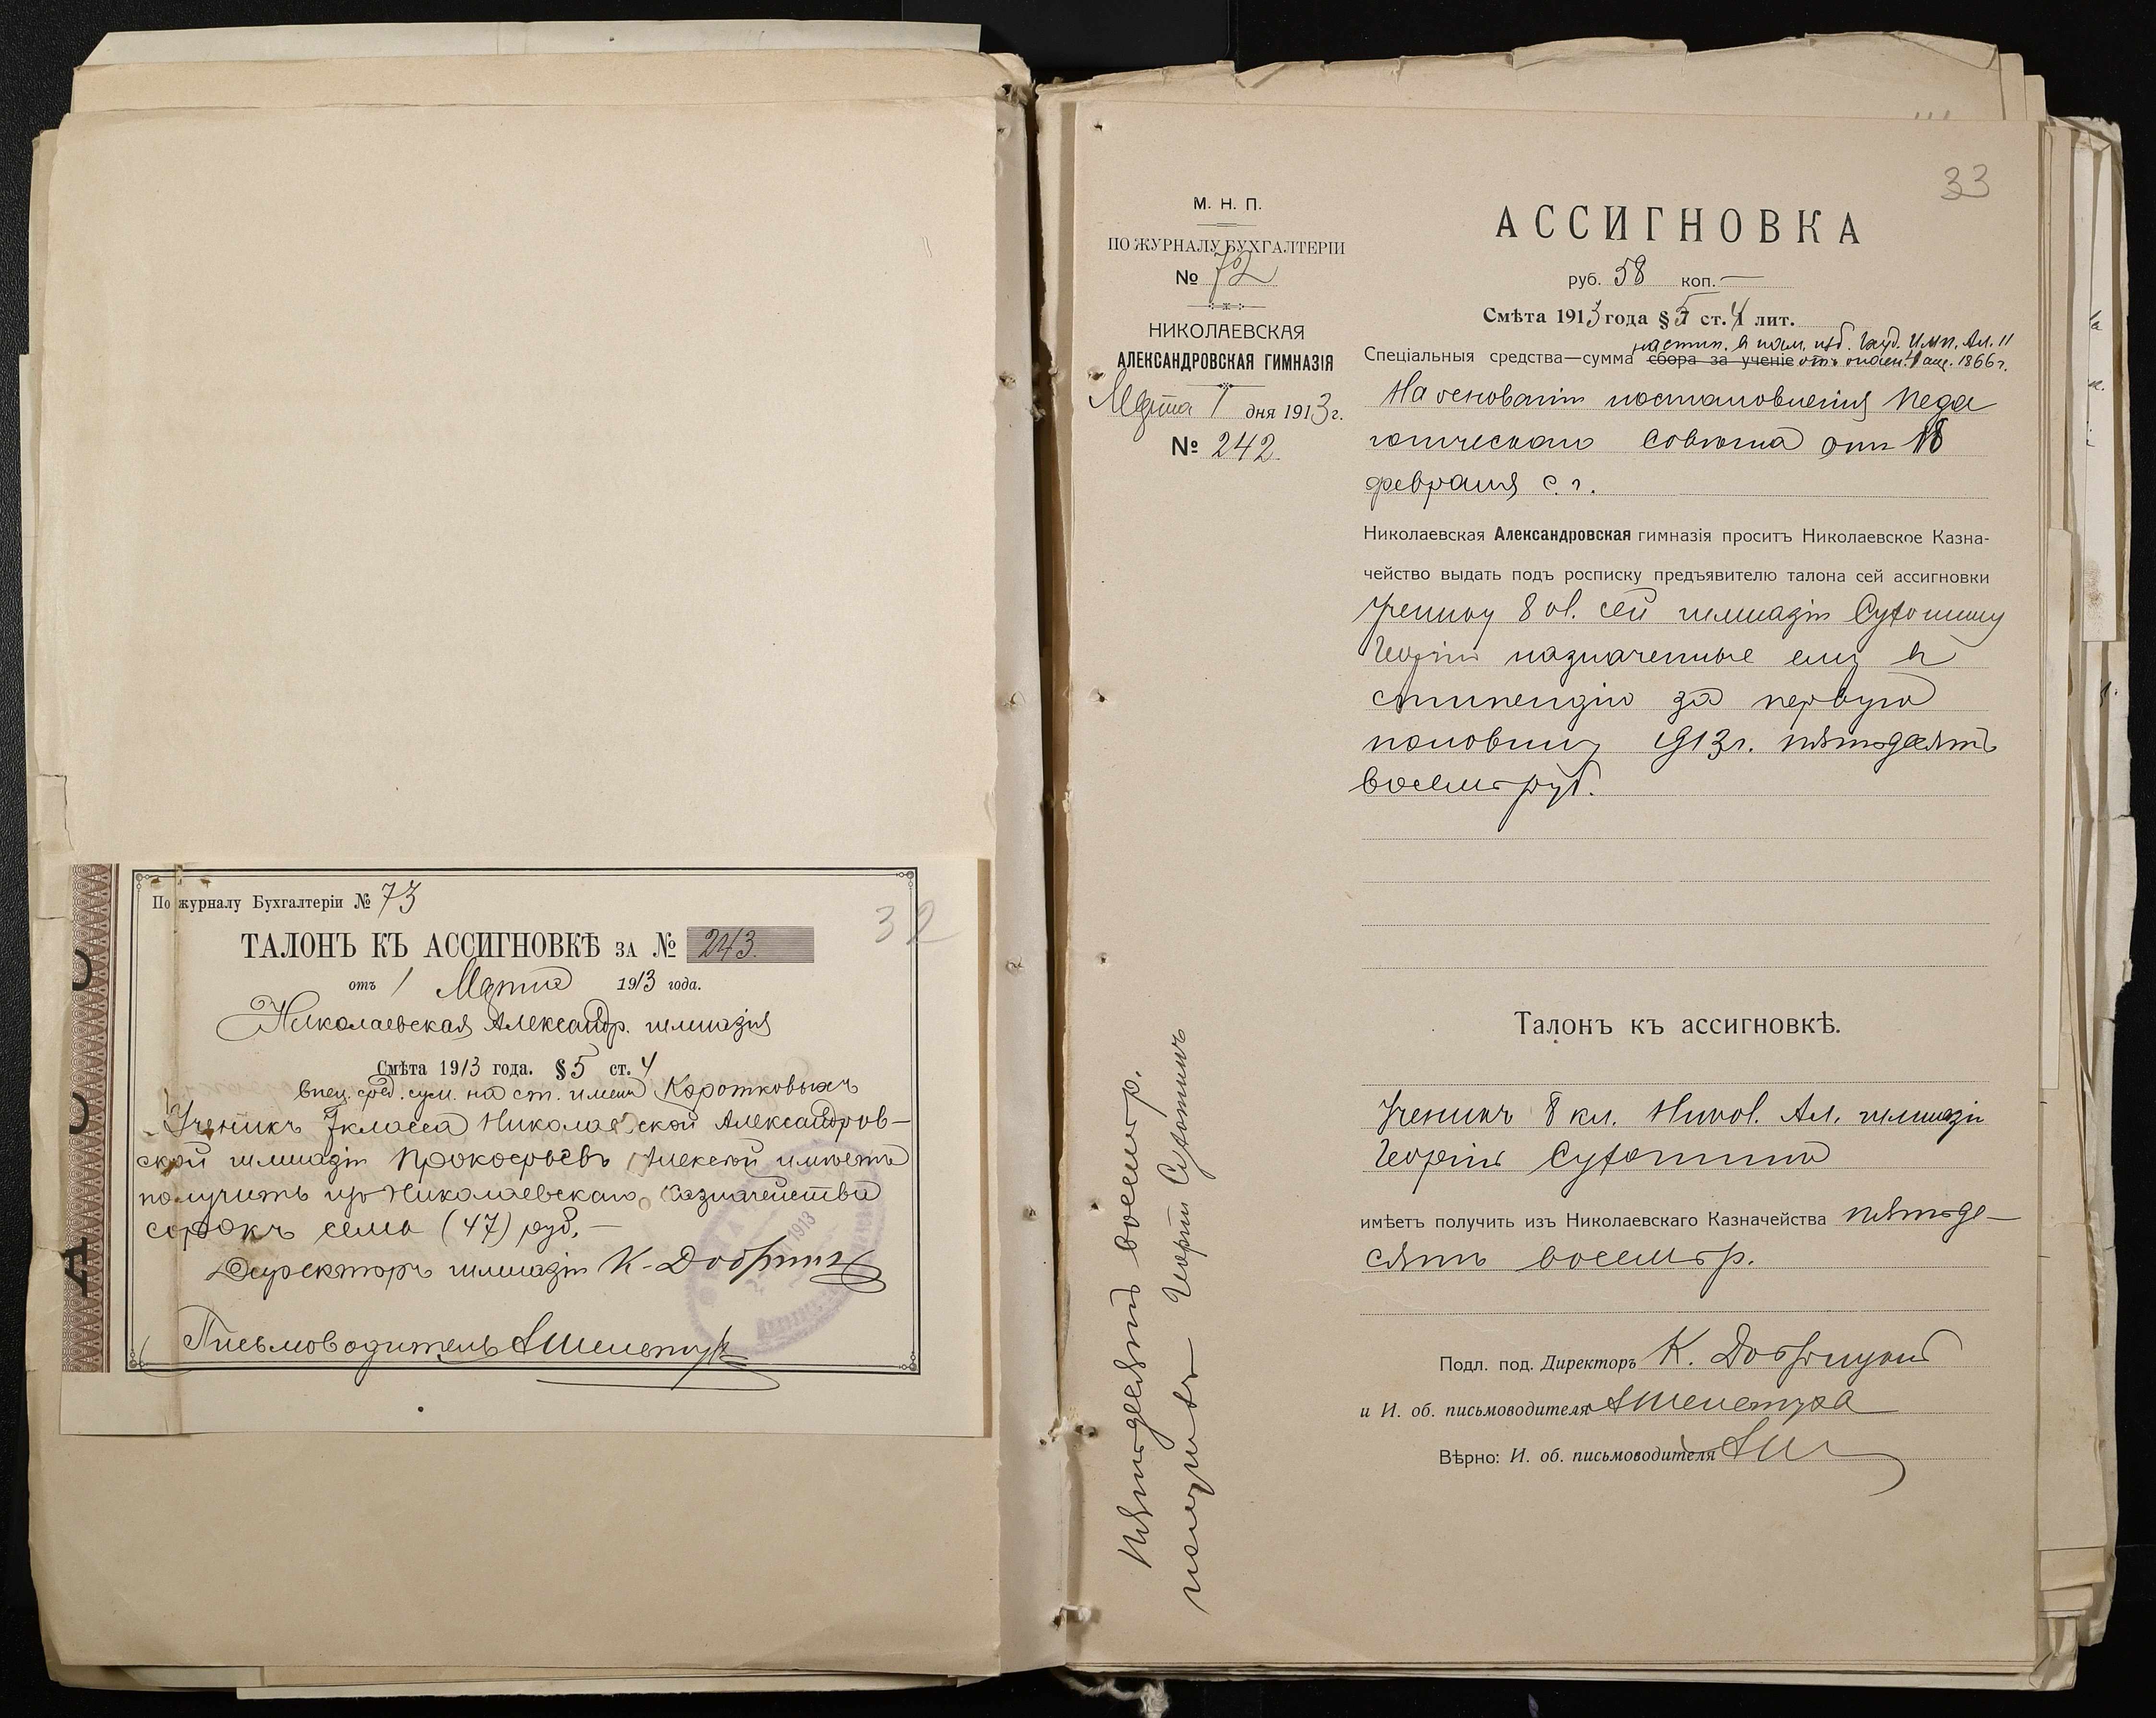 По журналу Бухгалтеріи № 73
32
ТАЛОНЪ КЪ АССИГНОВКѢ ЗА № 243.
отъ 1 Марта 1913 года.
Николаевская Александр. гимназія
Смѣта 1913 года. § 5 ст. 4
спец. сред. сум. на ст. имени Коротковыхъ
Ученикъ 7 класса Николаевской Александров-
ской гимназіи Прокофьевъ Алексѣй имѣетъ
получить изъ Николаевскаго Казначейства
сорокъ семь (47) руб. —
Директоръ гимназіи К. Добр
Письмоводитель АШелетура
1913
33
М. Н. П.
ПО ЖУРНАЛУ БУХГАЛТЕРІИ
№ 72
НИКОЛАЕВСКАЯ
АЛЕКСАНДРОВСКАЯ ГИМНАЗІЯ
Марта 1 дня 1913 г.
№ 242
АССИГНОВКА
руб. 58 коп. —
Смѣта 1913 года § 5 ст. 4 лит.
на стип. в пам. изб. Госуд. Имп. Ал. II
Спеціальныя средства—сумма сбора за ученіе отъ опасн. 4 апр. 1866 г.
На основаніи постановленія Педа
гогическаго Совѣта отъ 18
февраля с. г.
Николаевская Александровская гимназія проситъ Николаевское Казна-
чейство выдать подъ росписку предъявителю талона сей ассигновки
Ученику 8 кл. сей гимназіи Сутомину
Георгію назначенные ему в
стипендію за первую
половину 1913 г. пятьдесятъ
восемь руб.
Талонъ къ ассигновкѣ.
Ученикъ 8 кл. Никол. Ал. гимназіи
Георгій Сутоминъ
имѣетъ получить изъ Николаевскаго Казначейства пятьде-
сятъ восемь р.
Подл. под. Директоръ К. Добр
и И. об. письмоводителя АШелетура
Вѣрно: И. об. письмоводителя АШ
Пятьдесятъ восемь р.
получилъ Георгій Сутоминъ